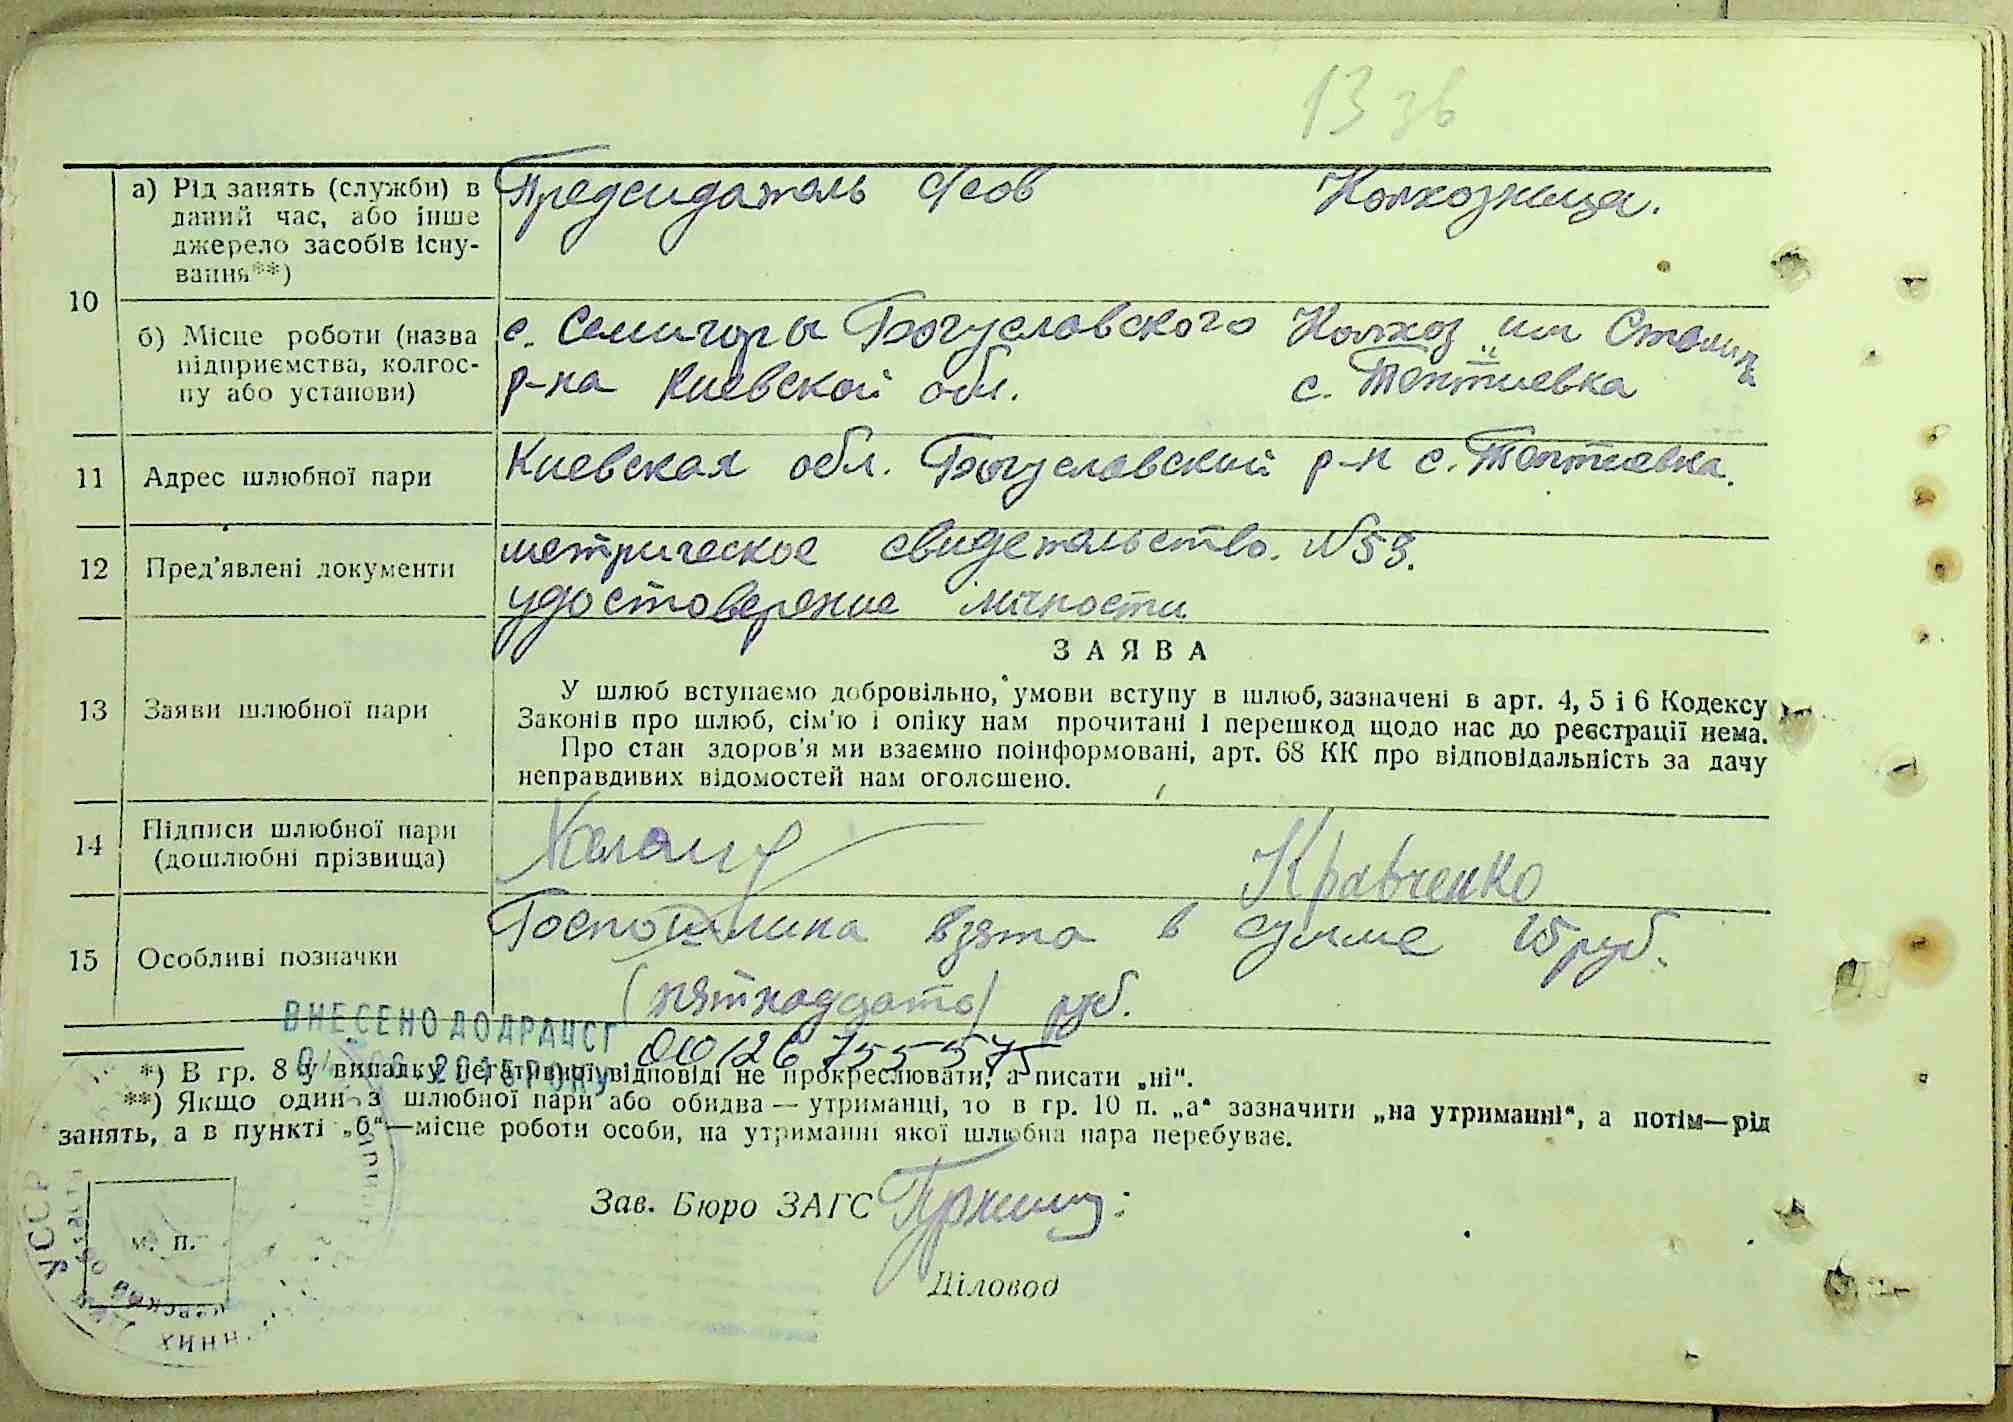 13 зв
10
а) Рід занять (служби) в
даний час, або інше
джерело засобів існу-
вання**)
Председатель
Колхозница.
б) Місце роботи (назва
підприємства, колгос-
пу або установи)
с. Семигоры Богуславского
р-на Киевской обл.
Колхоз им Сталина
с. Тептиевка
11
Адрес шлюбної пари
Киевская обл. Богуславский р-н с. Тептиевка.
12
Пред'явлені документи
метрическое свидетельство. N 53.
удостоверение личности
13
Заяви шлюбної пари
ЗАЯВА
У шлюб вступаємо добровільно, умови вступу в шлюб, зазначені в арт. 4, 5 і 6 Кодексу
Законів про шлюб, сім'ю і опіку нам прочитані і перешкод щодо нас до реєстрації нема.
Про стан здоров'я ми взаємно поінформовані, арт. 68 КК про відповідальність за дачу
неправдивих відомостей нам оголошено.
14
Підписи шлюбної пари
(дошлюбні прізвища)
Кравченко
15
Особливі позначки
Госпошлина взята в сумме 15 руб.
(пятнадцать) руб.
ВНЕСЕНО ДО ДРАЦСГ
00126755575
*) В гр. 8 у випадку негативної відповіді не прокреслювати, а писати „ні“.
**) Якщо один з шлюбної пари або обидва — утриманці, то в гр. 10 п. „а“ зазначити „на утриманні“, а потім—рід
занять, а в пункті „б“—місце роботи особи, на утриманні якої шлюбна пара перебуває.
Зав. Бюро ЗАГС
м. п.
Діловод
УССР